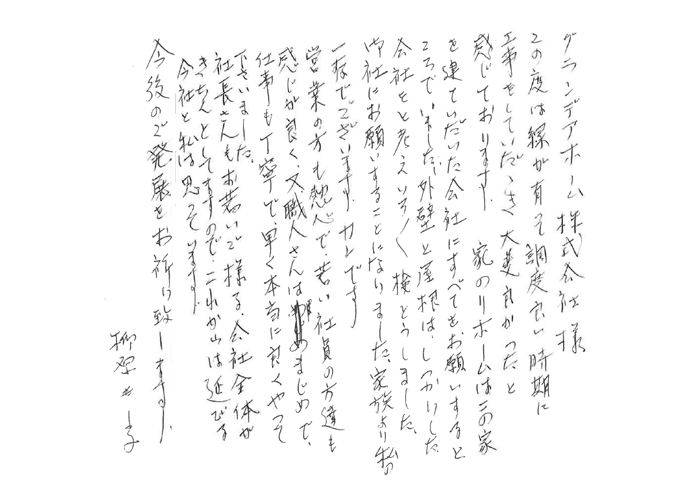 グランデアホーム株式会社様
この度は縁が有って調度良い時期に
工事をしていただき大変良かったと
感じております。家のリホームはこの家
を建ていだいた会社にすべてをお願いすると
ころでいました。外壁と屋根は、しっかりした
会社をと考えいろく検とうしました。
御社にお願いすることになりました、家族より私の
一存でございます。カンです
営業の方も熱心で、若い社員の方達も
感じが良く、又職人さんはまじめで、
仕事も丁寧で、早く本当に良くやって
下さいました。
社長さんもお若いで様る、会社全体が
きちんとしてますので、これからは延びる
会社と私は思っています。
今後のご発展をお祈り致します。